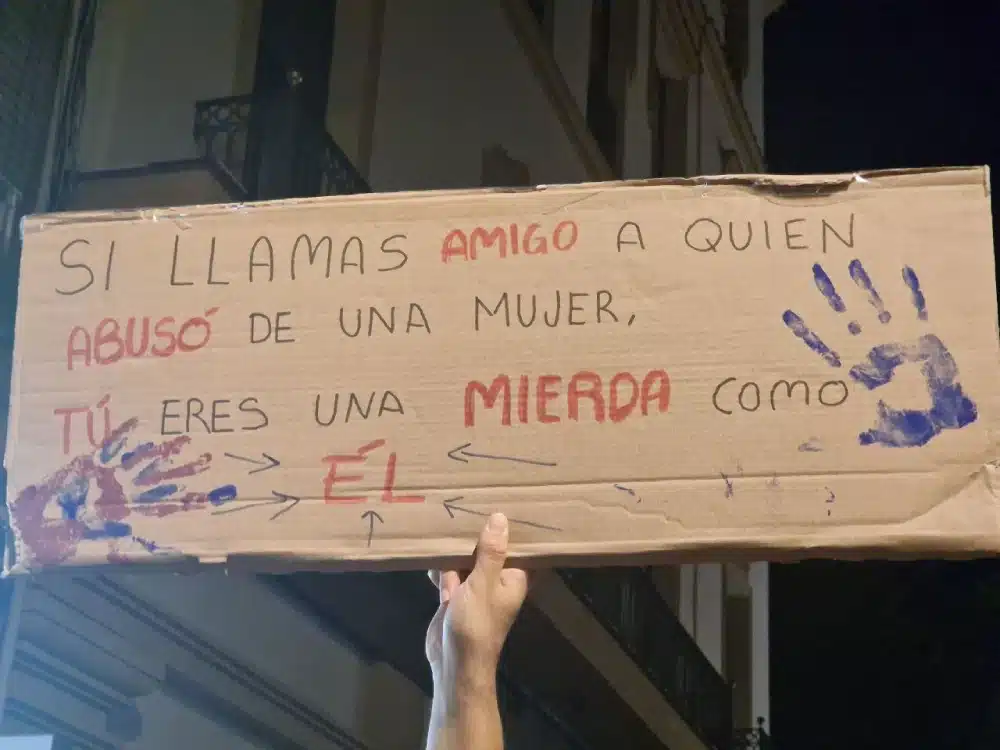 SI LLAMAS AMIGO A QUIEN
ABUSÓ DE UNA MUJER,
TÚ ERES UNA MIERDA COMO
ÉL